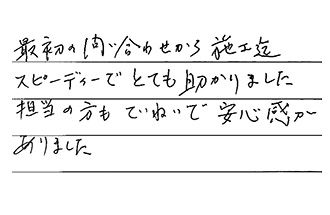 最初の問い合わせから施工迄
スピーディーでとても助かりました
担当の方もていねいで安心感が
ありました